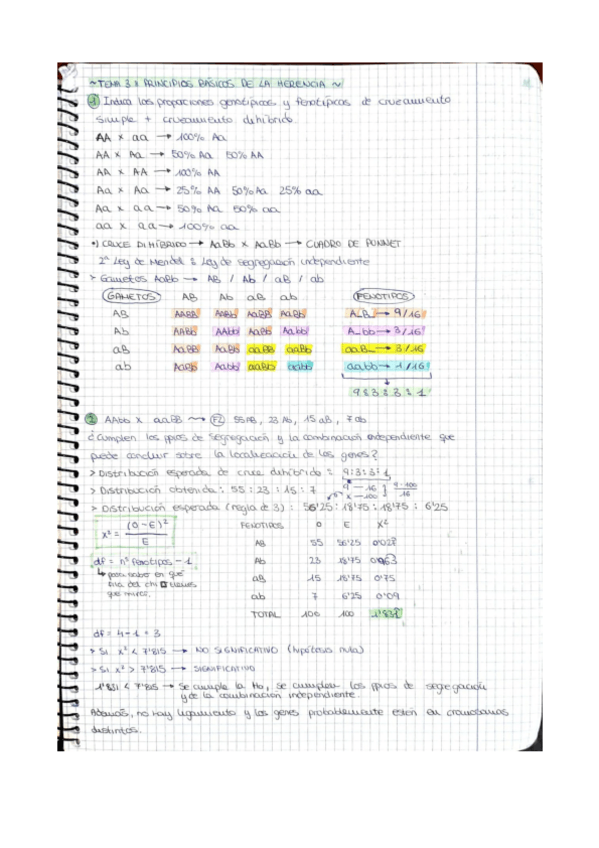 ~TEMA 3: PRINCIPIOS BÁSICOS DE LA HERENCIA~
1 Indica las proporciones genotípicas y fenotípicas de cruzamiento
simple + cruzamiento dihíbrido.
AA x aa → 100% Aa
AA x Aa → 50% Aa 50% AA
AA x AA → 100% AA
Aa x Aa → 25% AA 50% Aa 25% aa
Aa x aa → 50% Aa 50% aa
aa x aa → 100% aa
•) CRUCE DIHÍBRIDO → AaBb x AaBb → CUADRO DE PUNNET
2ª Ley de Mendel: Ley de segregación independiente
> Gametos AaBb → AB / Ab / aB / ab
GAMETOS AB Ab aB ab FENOTIPOS
AB AABB AABb AaBB AaBb A_B_ → 9/16
Ab AABb AAbb AaBb Aabb A_bb → 3/16
aB AaBB AaBb aaBB aaBb aaB_ → 3/16
ab AaBb Aabb aaBb aabb aabb → 1/16
9:3:3:1
2 AAbb x aaBB → F2 55 AB, 23 Ab, 15 aB, 7 ab
¿Cumplen los ppios de segregación y la combinación independiente que
puede concluir sobre la localización de los genes?
> Distribución esperada de cruce dihíbrido: 9:3:3:1
> Distribución obtenida: 55:23:15:7 9 — 16 9·100
x — 100 16
> Distribución esperada (regla de 3): 56'25:18'75:18'75:6'25
x² = (O-E)² / E
FENOTIPOS O E X²
AB 55 56'25 0'028
df = nº fenotipos - 1 Ab 23 18'75 0'963
para saber en qué
línea del chi tienes aB 15 18'75 0'75
que mirar. ab 7 6'25 0'09
TOTAL 106 100 1'831
df = 4-1 = 3
> Si x² < 7'815 → NO SIGNIFICATIVO (hipótesis nula)
> Si x² > 7'815 → SIGNIFICATIVO
1'831 < 7'815 → Se cumple la Ho, se cumplen los ppios de segregación
y de la combinación independiente.
Además, no hay ligamiento y los genes probablemente estén en cromosomas
distintos.